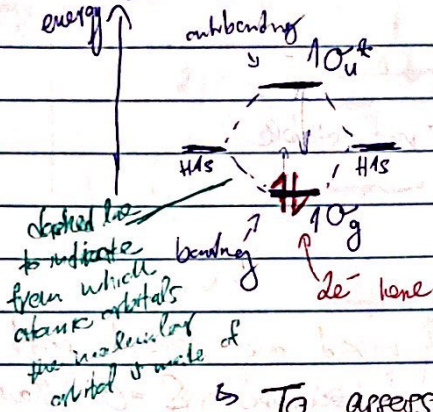 energy
antibonding
1σu*
H1s
H1s
1σg
bonding
2e⁻ here
dashed line
to indicate
from which
atomic orbitals
the molecular
orbital is made of
↳ To assess